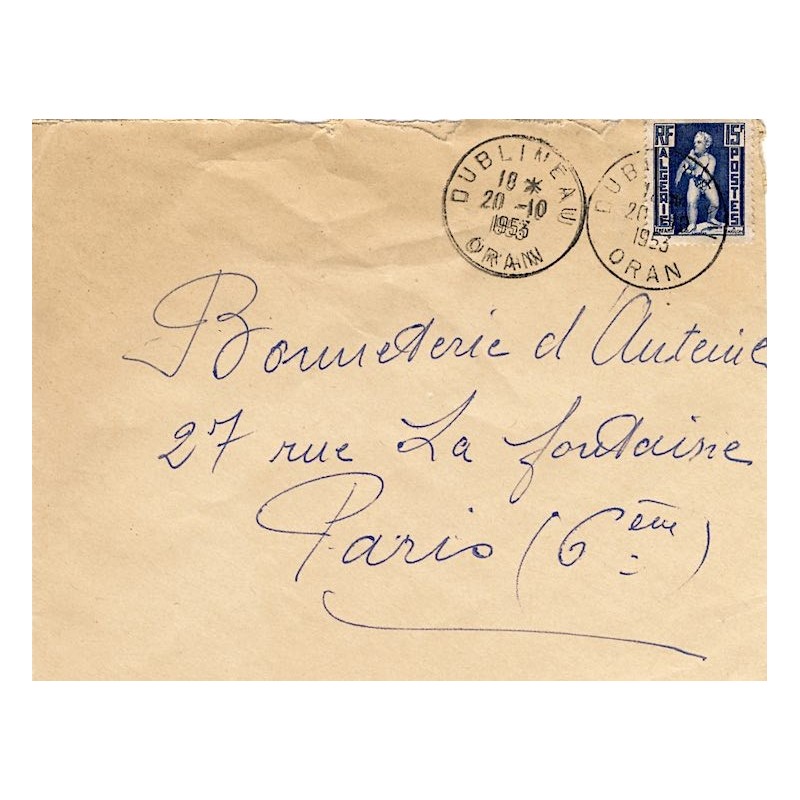 DUBLINEAU
18 *
20 -10
1953
ORAN
DUBLINEAU
18 *
20 -10
1953
ORAN
RF
15F
ALGERIE
POSTES
Bonneterie d'Auteuil
27 rue La fontaine
Paris (6ème)